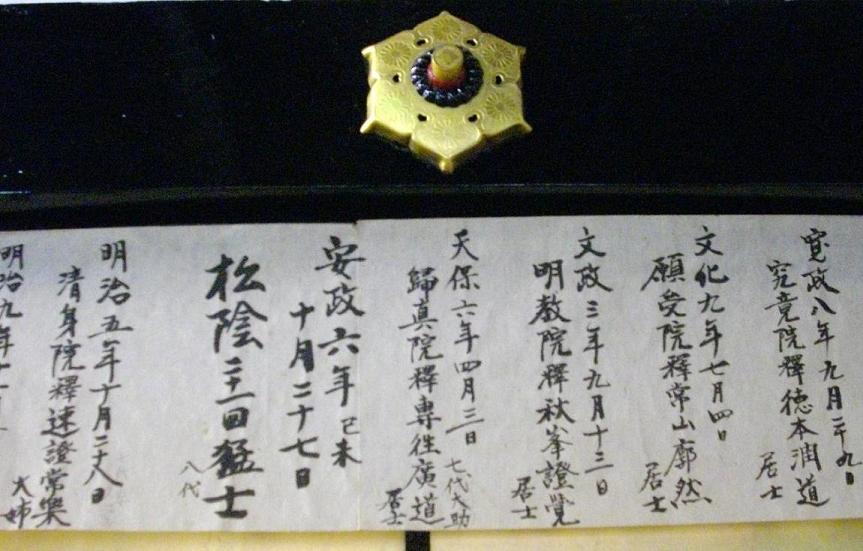 寛政八年九月二十九日
究竟院釋徳本潤道
居士
文化九年七月四日
願受院釋常山廓然
居士
文政三年九月十三日
明教院釋秋峯證覚
居士
天保六年四月三日
七代大助
歸真院釋専往廣道
居士
安政六年己未
十月二十七日
松陰二十一回猛士
八代
明治五年十月二十八日
清身院釋速證常楽
大姉
明治九年十一月